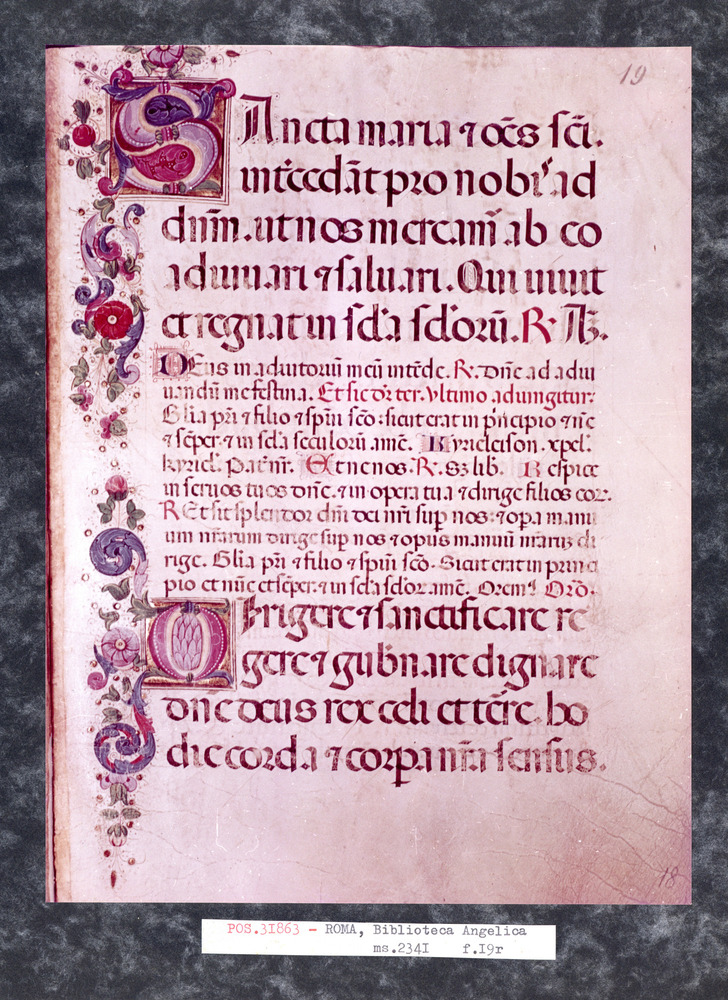 19
SAncta maria ⁊ oēs sc̄i.
intēcedāt pro nobiˢ ad
dn̄m. ut nos meream̄ ab eo
adiuuari ⁊ saluari. Qui uiuit
et regnat in scl̄a scl̄orū. R⁊ Am̄.
DEus in adiutoriū meū intēde. R⁊. Dn̄e ad adiu
uandū me festina. Et sic dr̄ ter. Vltimo adiungitur.
Gl̄ia pr̄i ⁊ filio ⁊ spūi sc̄o: sicut erat in p̄ncipio ⁊ nūc
⁊ sēper. ⁊ in scl̄a seculorū amē. Kyrieleison. xpel̄.
kyriel̄. Pat̄ nr̄. Et ne nos. R⁊. Sȝ lib. Respice
in seruos tuos dn̄e. ⁊ in opera tua ⁊ dirige filios eoꝝ.
R⁊ Et sit splendor dn̄i dei nr̄i sup̄ nos: ⁊ opa manu
um nr̄arum dirige sup̄ nos ⁊ opus manuū nr̄arū di
rige. Gl̄ia pr̄i ⁊ filio ⁊ spūi sc̄o. Sicut erat in princi
pio et nūc et sēper. ⁊ in scl̄a scl̄oꝝ amē. Orem⁹ Orō.
DIrigere ⁊ sanctificare re
gere ⁊ gub̄nare dignare
dn̄e deus rex celi et tēre. ho
die corda ⁊ corꝑa nr̄a sensus.
18
POS.31863 - ROMA, Biblioteca Angelica
ms.2341 f.19r